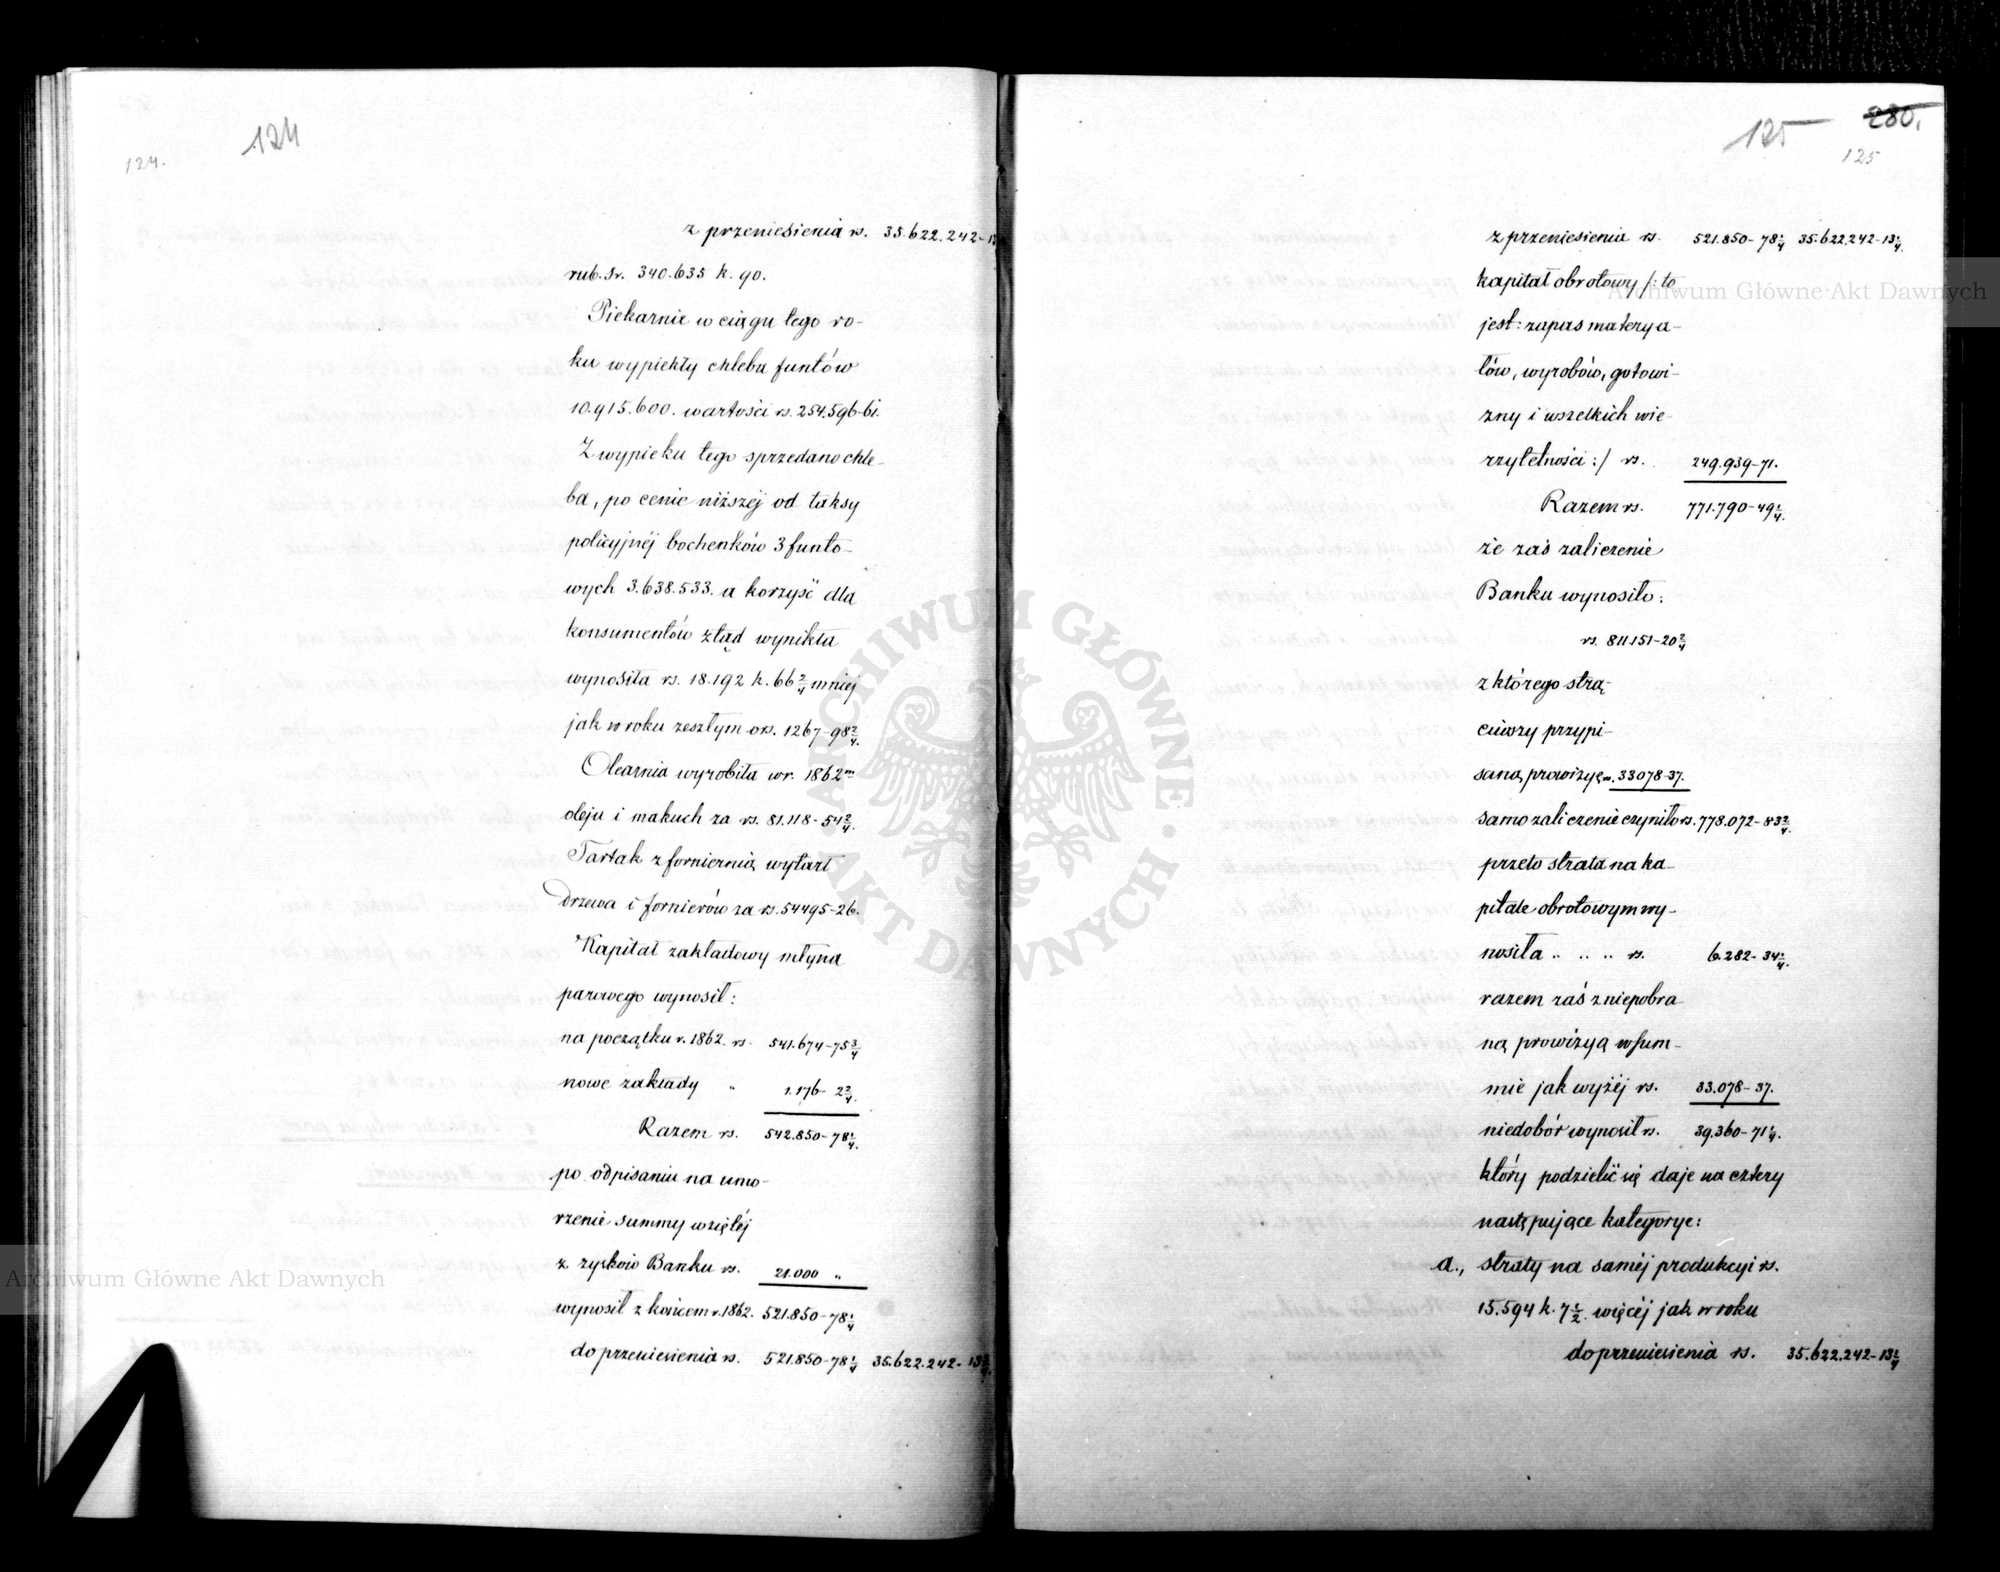 124
124.
z przeniesienia rs. 35.622.242-13
rub. sr. 340.635 k. 90.
Piekarnie w ciągu tego ro-
ku wypiekły chleba funtów
10.915.600. wartości rs. 254.596-61.
Z wypieku tego sprzedano chle-
ba, po cenie niższéj od taksy
policyjnéj bochenków 3 funto-
wych 3.638.533. a korzyść dla
konsumentów ztąd wynikła
wynosiła rs. 18.192 k. 66 2/4 mniej
jak w roku zeszłym o rs. 1267-98 2/4.
Olearnia wyrobiła w r. 1862m
oleju i makuch za rs. 81.118-54 2/4.
Tartak z forniernią wytarł
drzewa i fornierów za rs. 54495-26.
Kapitał zakładowy młyna
parowego wynosił:
na początku r. 1862. rs. 541.674-75 3/4
nowe zakłady " 1.176- 2 2/4.
Razem rs. 542.850-78 1/4.
po odpisaniu na umo-
rzenie summy wziętéj
z zysków Banku rs. 21.000 "
wynosił z końcem r. 1862. 521.850-78 1/4
do przeniesienia rs. 521.850-78 1/4 35.622.242-13
280.
125
125
z przeniesienia rs. 521.850-78 1/4 35.622.242-13 1/4.
kapitał obrotowy /: to
jest: zapas materya-
łów, wyrobów, gotowi-
zny i wszelkich wie-
rzytelności :/ rs. 249.939-71.
Razem rs. 771.790-49 1/4.
że zaś zaliczenie
Banku wynosiło:
rs. 811.151-20 2/4
z którego strą-
ciwszy przypi-
saną prowizyę rs. 33078-37.
samo zaliczenie czyniło rs. 778.072-83 2/4.
przeto strata na ka-
pitale obrotowym wy-
nosiła .. .. .. rs. 6.282-34 1/4.
razem zaś z niepobra-
ną prowizyą w sum-
mie jak wyżéj rs. 33.078-37.
niedobór wynosił rs. 39.360-71 1/4.
który podzielić się daje na cztery
następujące kategorye:
a., straty na saméj produkcyi rs.
15.594 k. 7 1/2. więcéj jak w roku
do przeniesienia rs. 35.622.242-13 1/4
Archiwum Główne Akt Dawnych
Archiwum Główne Akt Dawnych
ARCHIWUM GŁÓWNE · AKT DAWNYCH ·